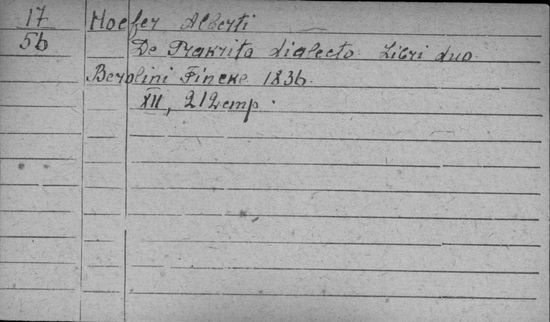 17 Hoefer Alberti
56 De Prakrita dialecto Libri duo
Berolini Fincke 1836.
XII, 212 стр.